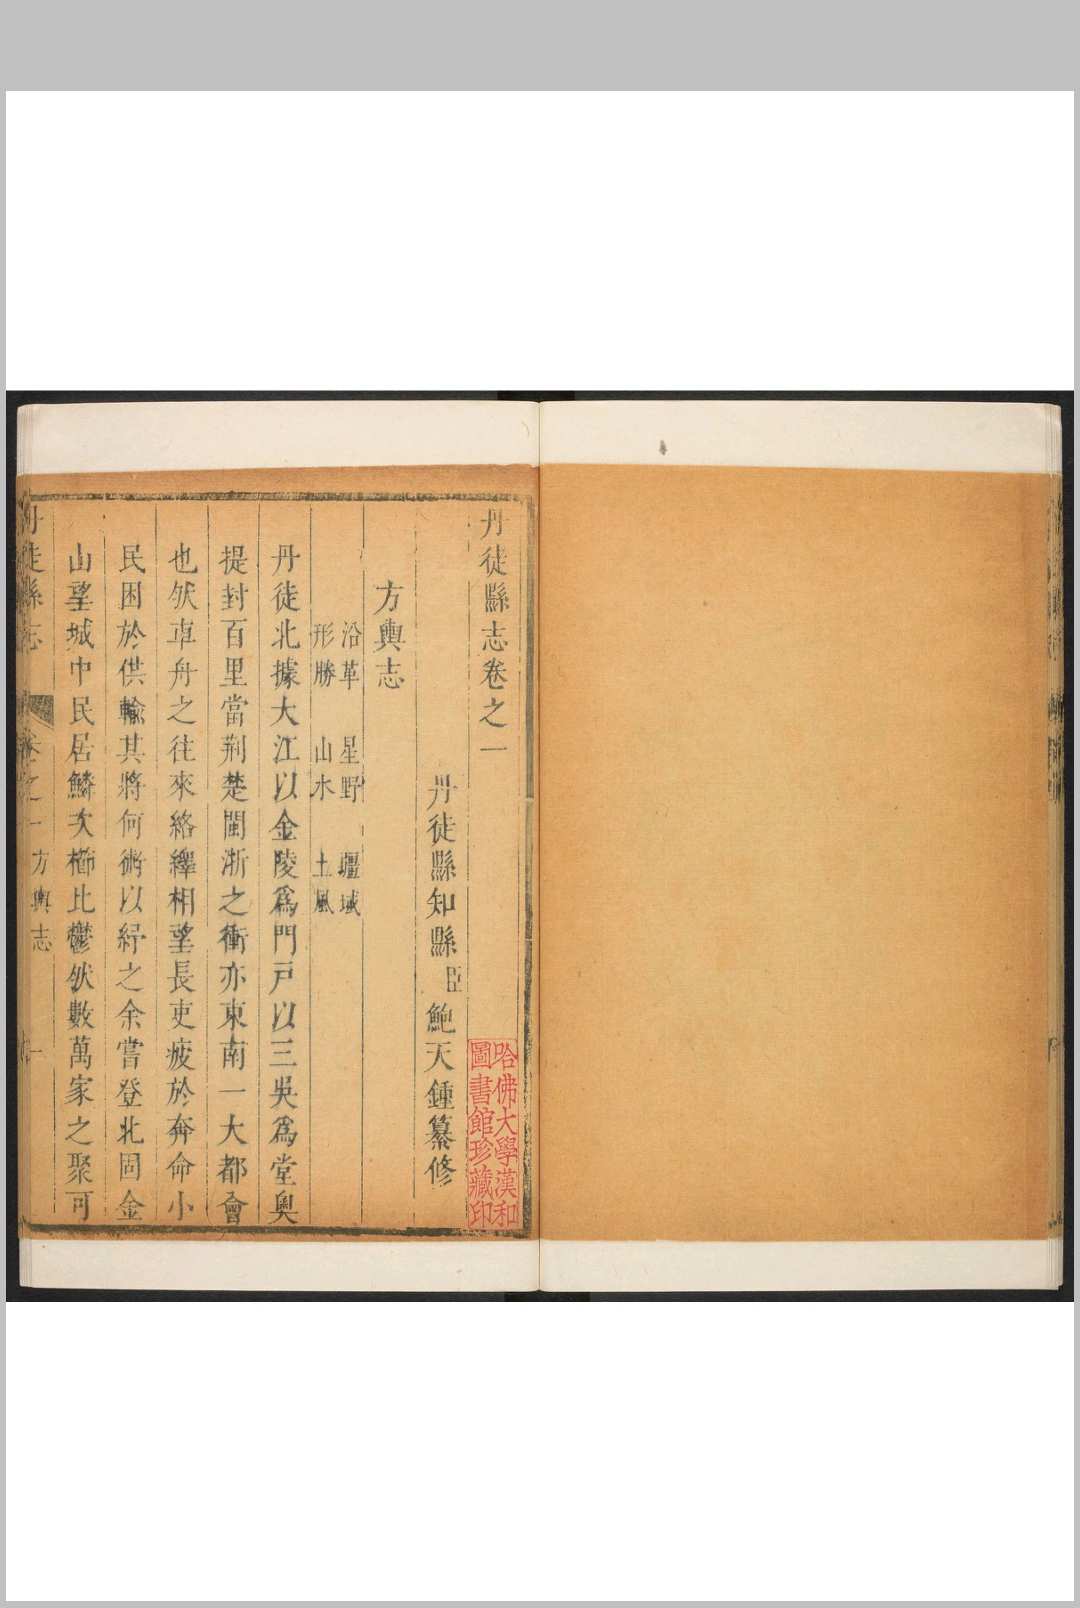 丹徒縣志卷之一
丹徒縣知縣臣鮑天鍾纂修
方輿志
沿革 星野 疆域
形勝 山水 土風
丹徒北據大江以金陵爲門戸以三吳爲堂奧
提封百里當荆楚閩浙之衝亦東南一大都會
也然車舟之往來絡繹相望長吏疲於奔命小
民困於供輸其將何術以紓之余嘗登北固金
山望城中民居鱗次櫛比鬱然數萬家之聚可
丹徒縣志 卷之一 方輿志 一
哈佛大學漢和
圖書館珍藏印